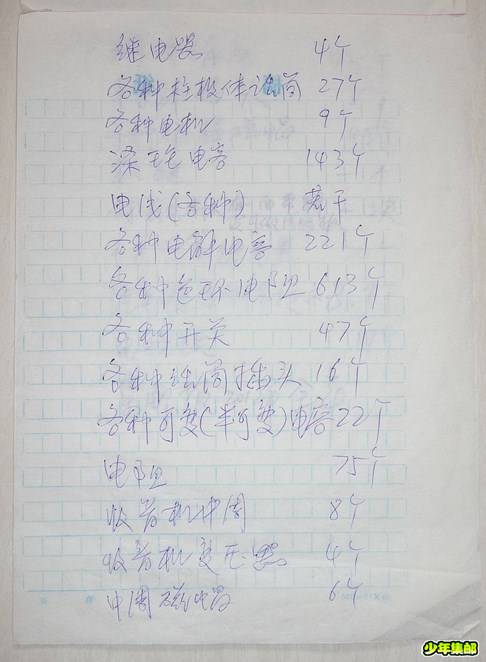 继电器 4个
各种 27个
各种电机 9个
涤 电容 143个
电线(各种) 若干
各种电解电容 221个
各种色环电阻 613个
各种开关 47个
各种 插头 16个
各种可变(半可变)电容 22个
电阻 75个
收音机中周 8个
收音机变压器 4个
中周 6个
少年集邮